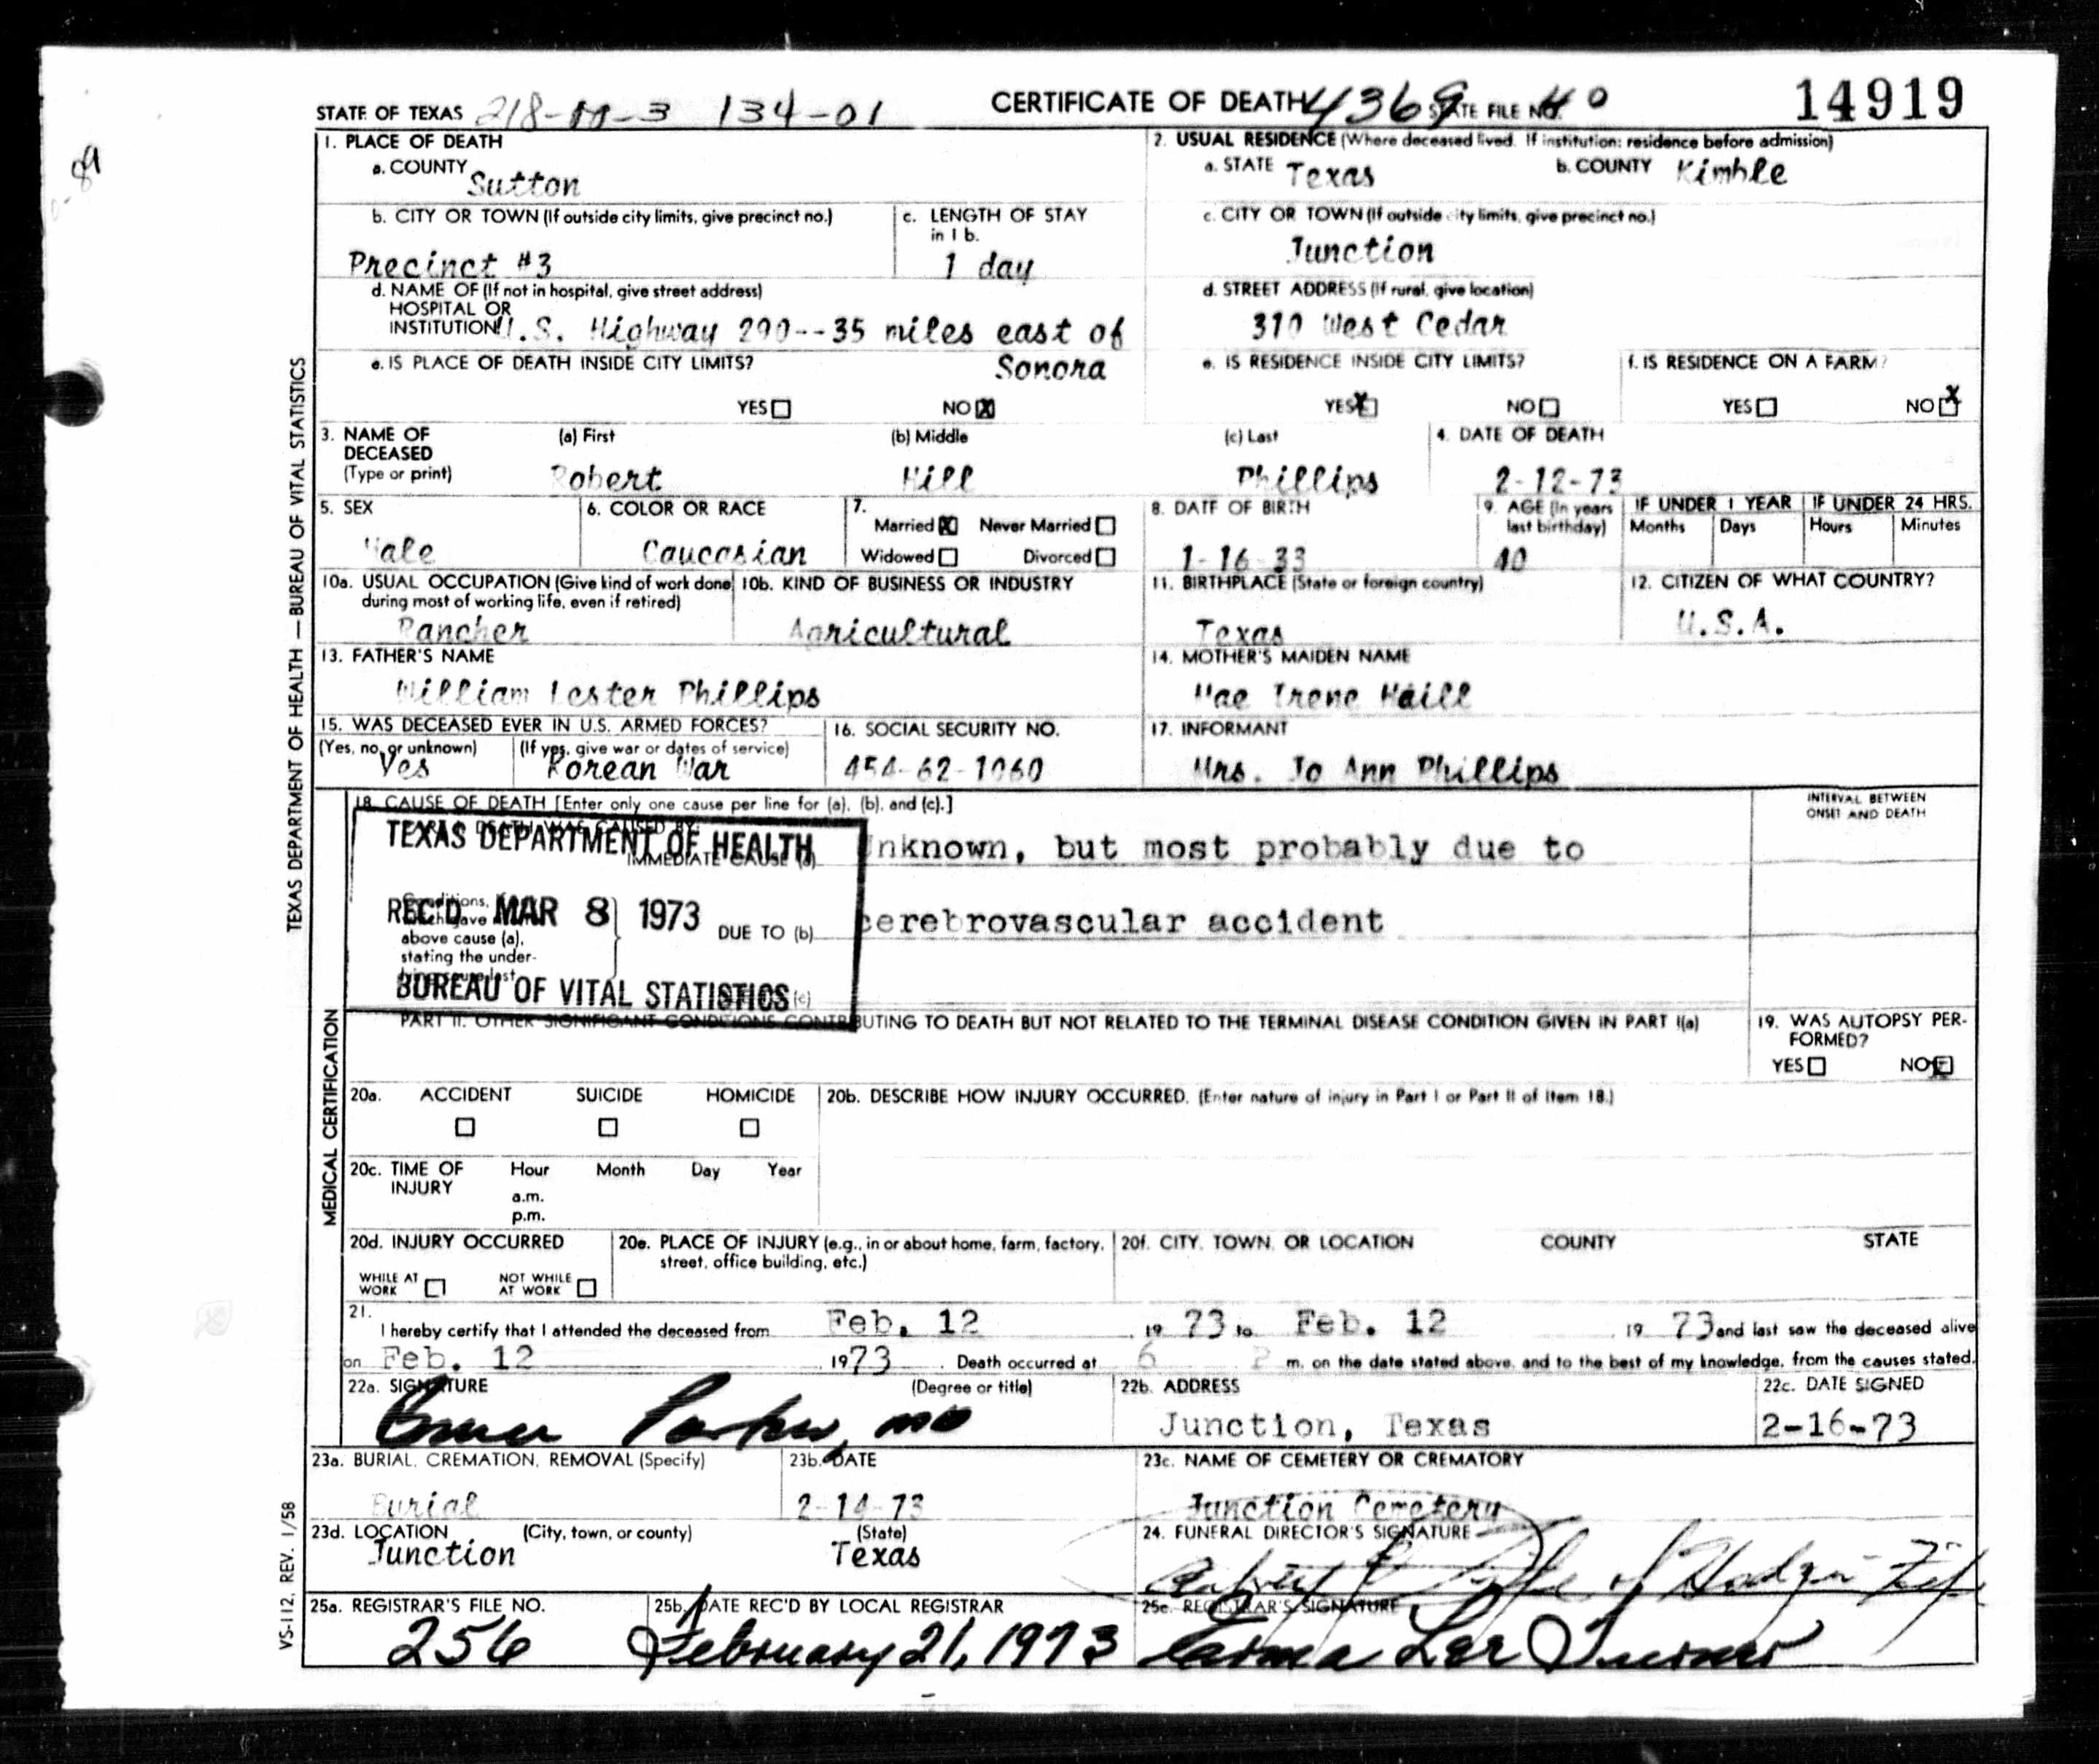 STATE OF TEXAS 218-00-3 134-01 CERTIFICATE OF DEATH 4369 STATE FILE NO. 40 14919
1. PLACE OF DEATH
a. COUNTY Sutton
2. USUAL RESIDENCE (Where deceased lived. If institution: residence before admission)
a. STATE Texas b. COUNTY Kimble
b. CITY OR TOWN (If outside city limits, give precinct no.)
Precinct #3
c. LENGTH OF STAY in 1 b.
1 day
c. CITY OR TOWN (If outside city limits, give precinct no.)
Junction
d. NAME OF (If not in hospital, give street address)
HOSPITAL OR
INSTITUTION U.S. Highway 290--35 miles east of
Sonora
d. STREET ADDRESS (If rural, give location)
310 West Cedar
e. IS PLACE OF DEATH INSIDE CITY LIMITS?
YES NO X
e. IS RESIDENCE INSIDE CITY LIMITS?
YES X NO
f. IS RESIDENCE ON A FARM?
YES NO X
3. NAME OF DECEASED (Type or print)
(a) First Robert
(b) Middle Hill
(c) Last Phillips
4. DATE OF DEATH
2-12-73
5. SEX
Male
6. COLOR OR RACE
Caucasian
7.
Married X Never Married
Widowed Divorced
8. DATE OF BIRTH
1-16-33
9. AGE (In years last birthday)
40
IF UNDER 1 YEAR
Months Days
IF UNDER 24 HRS.
Hours Minutes
10a. USUAL OCCUPATION (Give kind of work done during most of working life, even if retired)
Rancher
10b. KIND OF BUSINESS OR INDUSTRY
Agricultural
11. BIRTHPLACE (State or foreign country)
Texas
12. CITIZEN OF WHAT COUNTRY?
U.S.A.
13. FATHER'S NAME
William Lester Phillips
14. MOTHER'S MAIDEN NAME
Mae Irene Haill
15. WAS DECEASED EVER IN U.S. ARMED FORCES?
(Yes, no, or unknown) Yes
(If yes, give war or dates of service) Korean War
16. SOCIAL SECURITY NO.
454-62-1060
17. INFORMANT
Mrs. Jo Ann Phillips
18. CAUSE OF DEATH [Enter only one cause per line for (a), (b), and (c).]
INTERVAL BETWEEN ONSET AND DEATH
TEXAS DEPARTMENT OF HEALTH
IMMEDIATE CAUSE (a) Unknown, but most probably due to
REC'D MAR 8 1973
above cause (a),
stating the under-
DUE TO (b) cerebrovascular accident
BUREAU OF VITAL STATISTICS (c)
PART II. OTHER SIGNIFICANT CONDITIONS CONTRIBUTING TO DEATH BUT NOT RELATED TO THE TERMINAL DISEASE CONDITION GIVEN IN PART I(a)
19. WAS AUTOPSY PER-
FORMED?
YES NO X
20a. ACCIDENT SUICIDE HOMICIDE
20b. DESCRIBE HOW INJURY OCCURRED. (Enter nature of injury in Part I or Part II of Item 18.)
20c. TIME OF INJURY Hour Month Day Year
a.m.
p.m.
20d. INJURY OCCURRED
WHILE AT WORK NOT WHILE AT WORK
20e. PLACE OF INJURY (e.g., in or about home, farm, factory, street, office building, etc.)
20f. CITY, TOWN, OR LOCATION COUNTY STATE
21.
I hereby certify that I attended the deceased from Feb. 12, 19 73 to Feb. 12, 19 73 and last saw the deceased alive
on Feb. 12, 1973. Death occurred at 6 P m. on the date stated above, and to the best of my knowledge, from the causes stated.
22a. SIGNATURE (Degree or title)
Parker, MD
22b. ADDRESS
Junction, Texas
22c. DATE SIGNED
2-16-73
23a. BURIAL, CREMATION, REMOVAL (Specify)
Burial
23b. DATE
2-14-73
23c. NAME OF CEMETERY OR CREMATORY
Junction Cemetery
23d. LOCATION (City, town, or county) (State)
Junction Texas
24. FUNERAL DIRECTOR'S SIGNATURE
25a. REGISTRAR'S FILE NO.
256
25b. DATE REC'D BY LOCAL REGISTRAR
February 21, 1973
25c. REGISTRAR'S SIGNATURE
Erma Lee Turner
TEXAS DEPARTMENT OF HEALTH — BUREAU OF VITAL STATISTICS
MEDICAL CERTIFICATION
VS-112, REV. 1/58